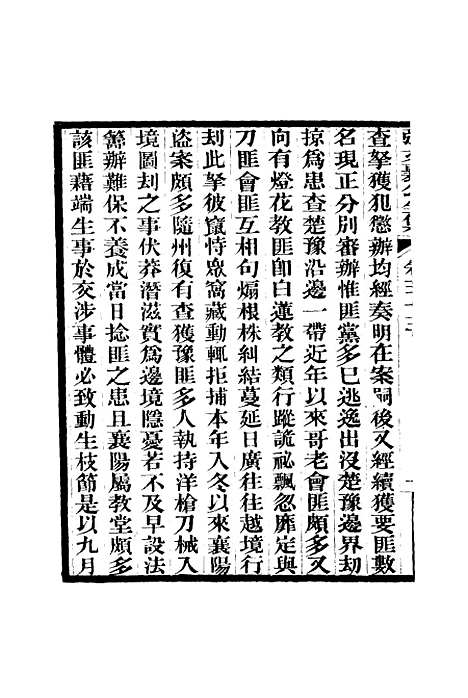 查拏獲犯懲辦均經奏明在案嗣後又經續獲要匪數
名現正分別審辦惟匪黨多已逃逸出沒楚豫邊界劫
掠爲患查楚豫沿邊一帶近年以來哥老會匪頗多又
向有燈花教匪卽白蓮教之類行蹤詭祕飄忽靡定與
刀匪會匪互相句煽根株糾結蔓延日廣往往越境行
刦此拏彼竄恃眾窩藏動輒拒捕本年入冬以來襄陽
盜案頗多隨州復有查獲豫匪多人執持洋槍刀械入
境圖刦之事伏莽潛滋實爲邊境隱憂若不及早設法
籌辦難保不養成當日捻匪之患且襄陽屬教堂頗多
該匪藉端生事於交涉事體必致動生枝節是以九月